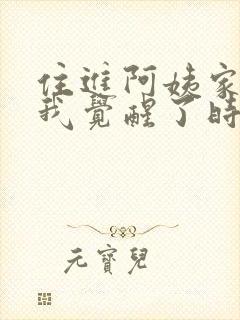 住進阿姨家
我覺醒了時
元寶兒